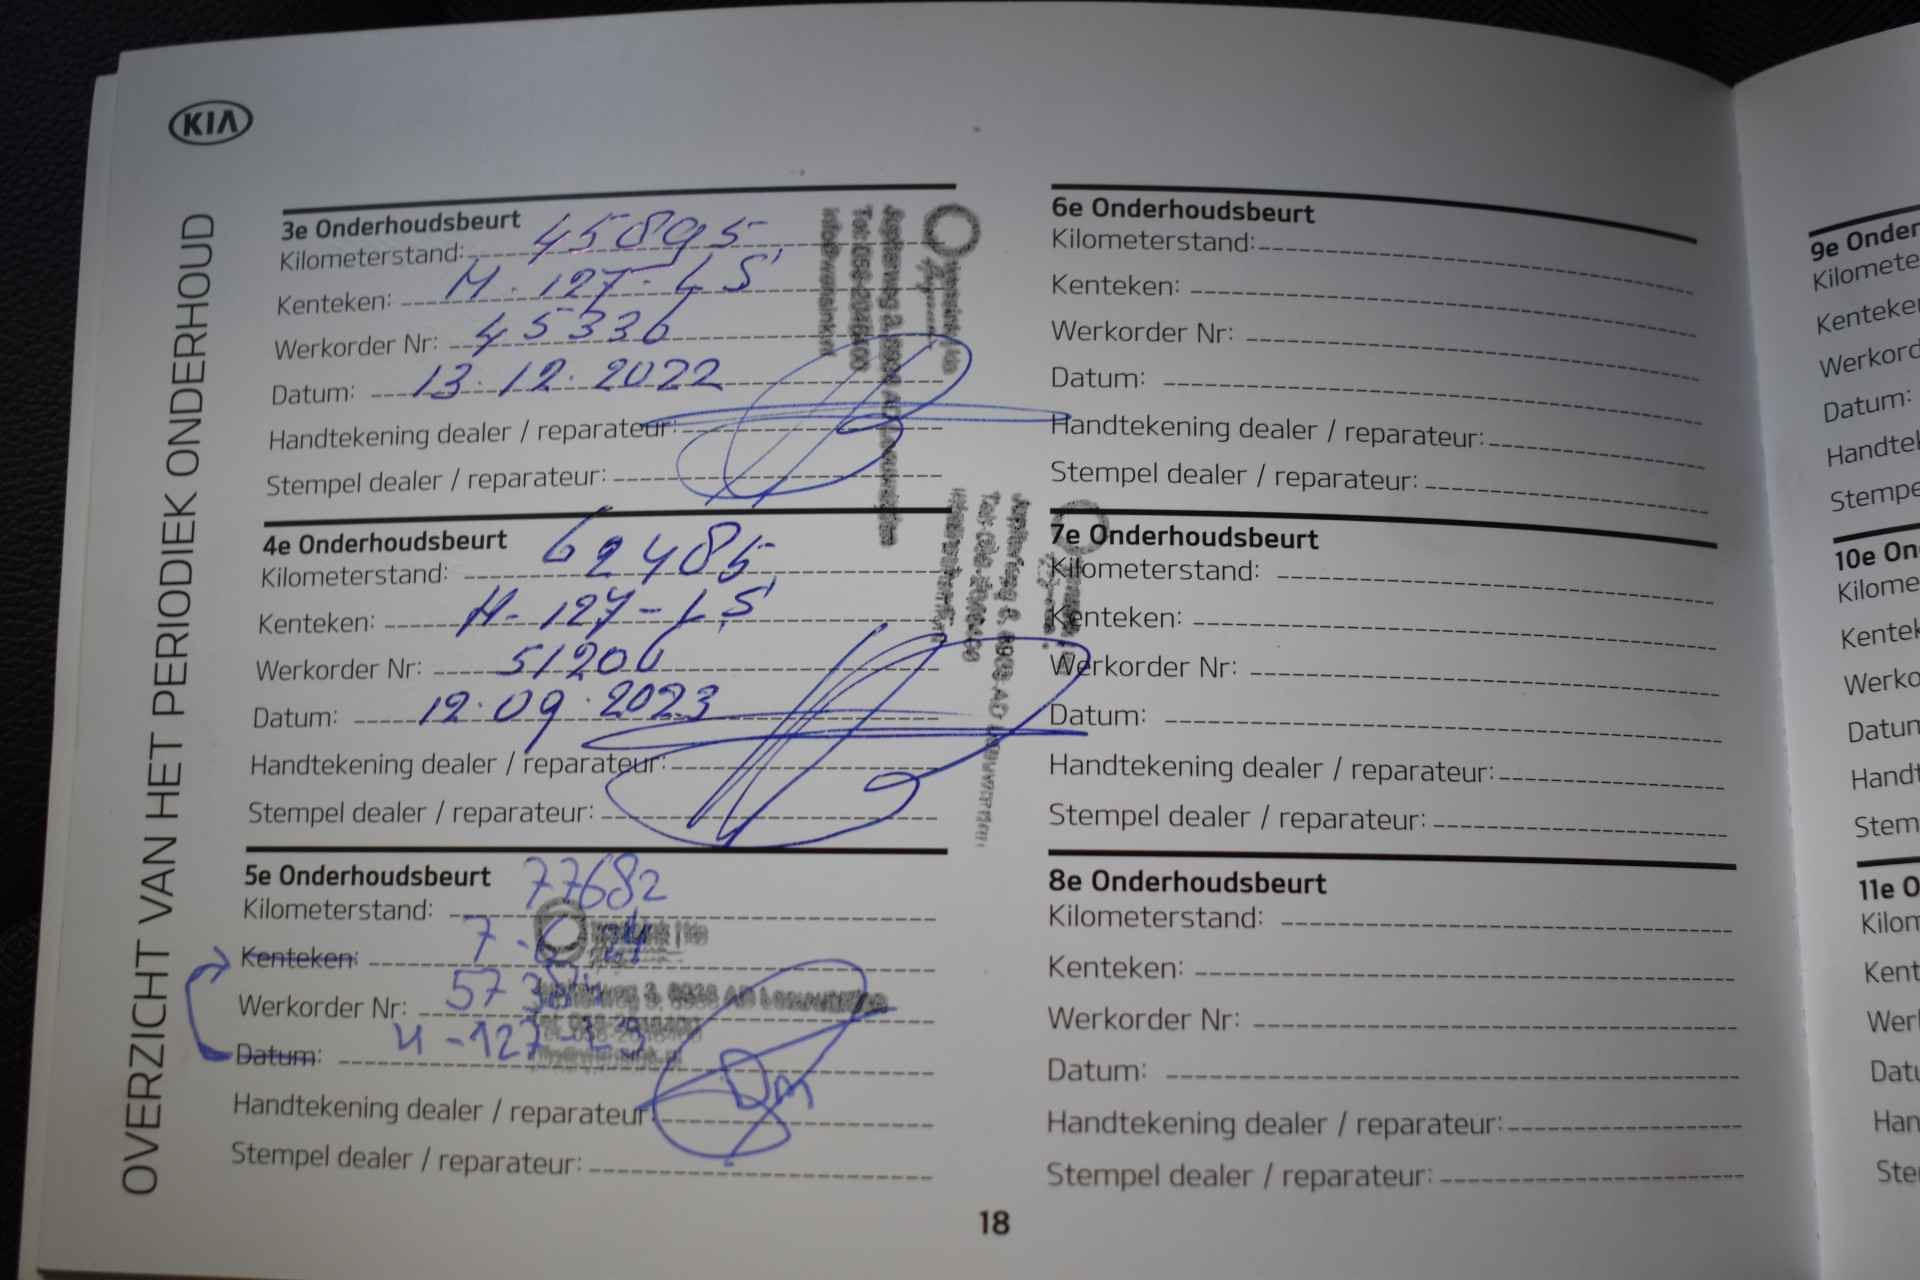 KIA
OVERZICHT VAN HET PERIODIEK ONDERHOUD
3e Onderhoudsbeurt
Kilometerstand: 45895
Kenteken: H-127-LS
Werkorder Nr: 45336
Datum: 13.12.2022
Handtekening dealer / reparateur:
Stempel dealer / reparateur:
Jupiterweg 3, 8938 AD Leeuwarden
Tel: 058-2046400
4e Onderhoudsbeurt
Kilometerstand: 62485
Kenteken: H-127-LS
Werkorder Nr: 51206
Datum: 12.09.2023
Handtekening dealer / reparateur:
Stempel dealer / reparateur:
5e Onderhoudsbeurt
Kilometerstand: 77682
Kenteken: 7-
Werkorder Nr: 57
Datum: H-127-LS
Handtekening dealer / reparateur:
Stempel dealer / reparateur:
6e Onderhoudsbeurt
Kilometerstand:
Kenteken:
Werkorder Nr:
Datum:
Handtekening dealer / reparateur:
Stempel dealer / reparateur:
7e Onderhoudsbeurt
Kilometerstand:
Kenteken:
Werkorder Nr:
Datum:
Handtekening dealer / reparateur:
Stempel dealer / reparateur:
8e Onderhoudsbeurt
Kilometerstand:
Kenteken:
Werkorder Nr:
Datum:
Handtekening dealer / reparateur:
Stempel dealer / reparateur:
18
9e Onder
Kilomete
Kenteke
Werkord
Datum:
Handtek
Stempe
10e On
Kilome
Kentek
Werko
Datun
Handt
Stem
11e O
Kilon
Kent
Wer
Datu
Han
Ste